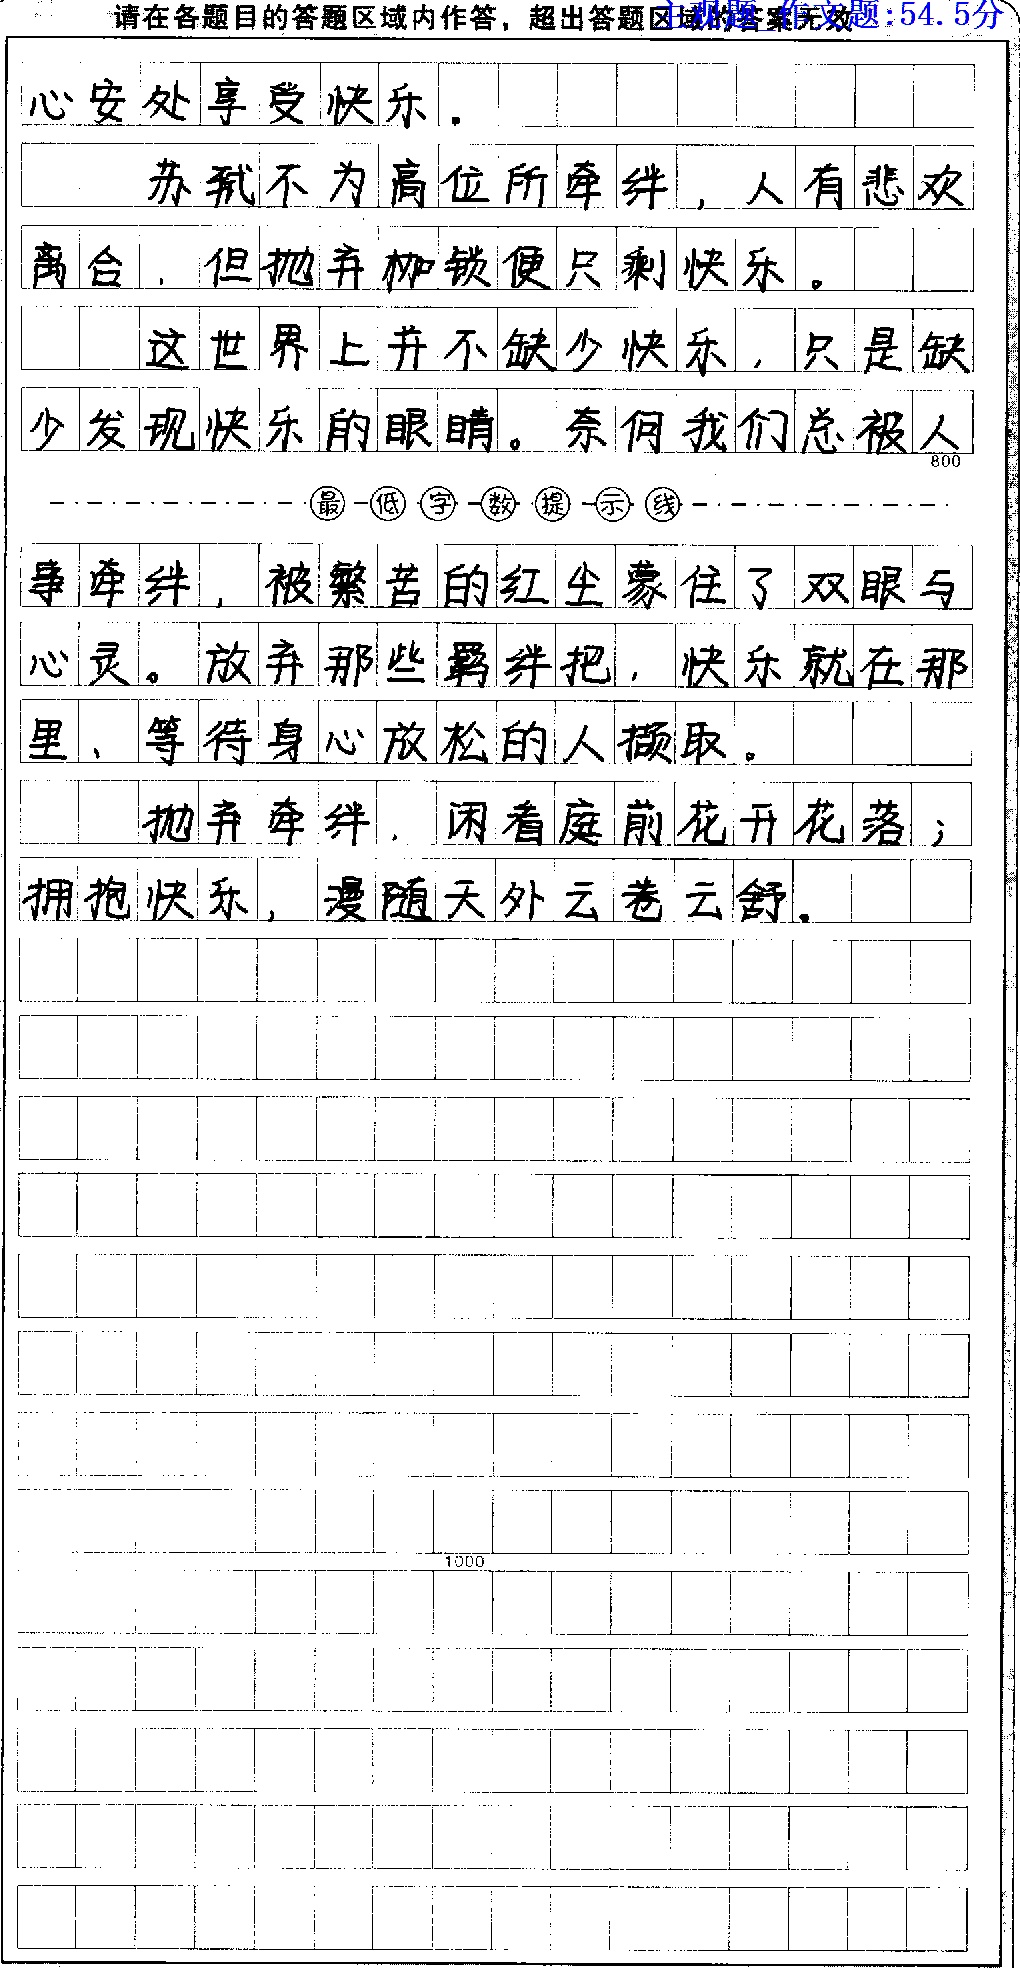 请在各题目的答题区域内作答，超出答题区域的答案无效
主观题 作文题:54.5分
心安处享受快乐.
苏轼不为高位所牵绊，人有悲欢
离合，但抛弃枷锁便只剩快乐。
这世界上并不缺少快乐，只是缺
少发现快乐的眼睛。奈何我们总被人
800
最低字数提示线
事牵绊，被繁苦的红尘蒙住了双眼与
心灵。放弃那些羁绊把，快乐就在那
里、等待身心放松的人撷取。
抛弃牵绊，闲看庭前花开花落；
拥抱快乐，漫随天外云卷云舒.
1000